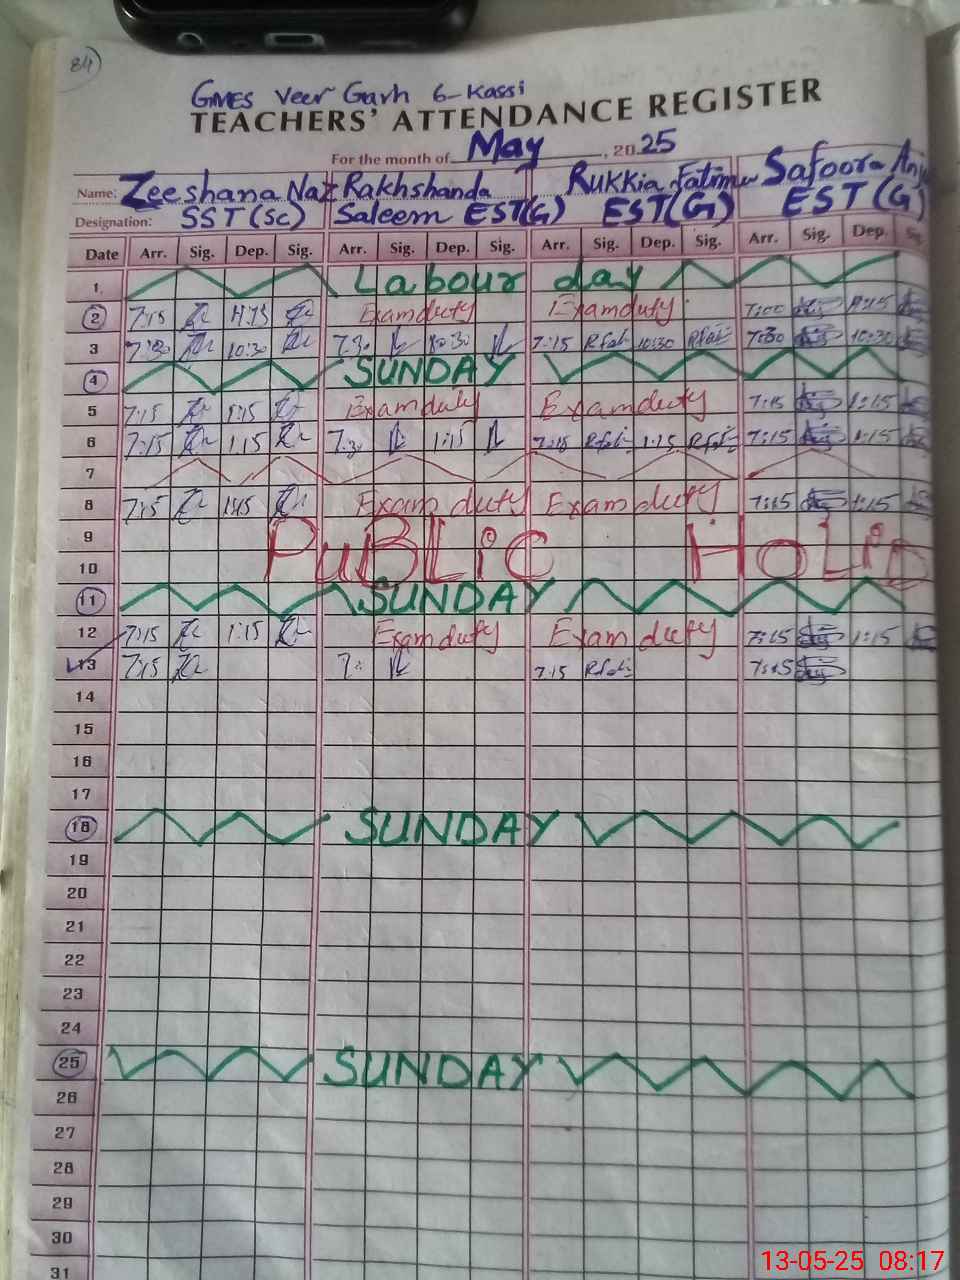 84
GMES Veer Garh 6-Kassi
TEACHERS' ATTENDANCE REGISTER
For the month of May, 2025
Name: Zeeshana Naz Rakhshanda Rukkia Fatima Safoora
Designation: SST (SC) Saleem EST(G) EST(G) EST(G)
Date Arr. Sig. Dep. Sig. Arr. Sig. Dep. Sig. Arr. Sig. Dep. Sig. Arr. Sig. Dep. Sig.
1. Labour day
2 7:15 Exam duty Exam duty 7:00
3 7:30 10:30 7:30 10:30 7:15 10:30 7:30 10:30
4 SUNDAY
5 7:15 1:15 Exam duty Exam duty 7:15 1:15
6 7:15 1:15 7:30 1:15 7:15 1:15 7:15 1:15
7
8 7:15 Exam duty Exam duty 7:15 1:15
9 PUBLIC HOLID
10
11 SUNDAY
12 7:15 1:15 Exam duty Exam duty 7:15 1:15
13 7:15 7: 7:15 7:15
14
15
16
17
18 SUNDAY
19
20
21
22
23
24
25 SUNDAY
26
27
28
29
30
31
13-05-25 08:17